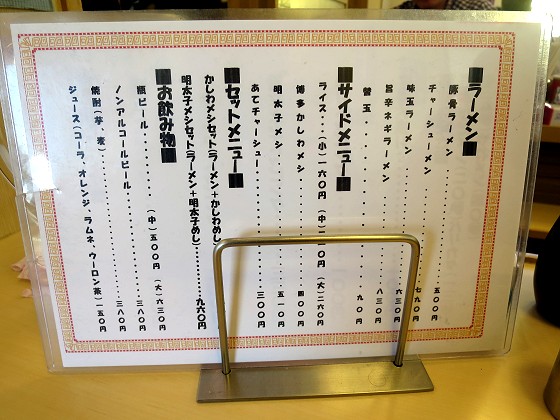 ■ラーメン■
豚骨ラーメン・・・・・・・・・・五〇〇円
チャーシューメン・・・・・・・・・・七九〇円
味玉ラーメン・・・・・・・・・・六三〇円
旨辛ネギラーメン・・・・・・・・・・八三〇円
替玉・・・・・・・・・・九〇円
■サイドメニュー■
ライス・・・(小)一六〇円 (中)二一〇円 (大)二六〇円
博多かしわメシ・・・・・・・・・・四〇〇円
明太子メシ・・・・・・・・・・五一〇円
あてチャーシュー・・・・・・・・・・三〇〇円
■セットメニュー■
かしわメシセット(ラーメン+かしわめし)
明太子メシセット(ラーメン+明太子めし)・・・・・・九六〇円
■お飲み物■
瓶ビール・・・・・・・・(中)五〇〇円 (大)六三〇円
ノンアルコールビール・・・・・・・・・・三八〇円
焼酎(芋、麦)・・・・・・・・・・三八〇円
ジュース(コーラ、オレンジ、ラムネ、ウーロン茶)一五〇円